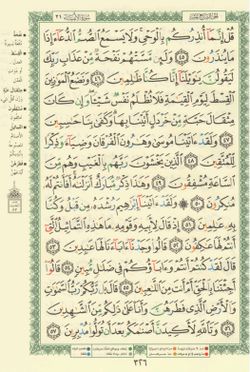 قُلْ إِنَّمَآ أُنذِرُكُم بِٱلْوَحْىِ ۚ وَلَا يَسْمَعُ ٱلصُّمُّ ٱلدُّعَآءَ إِذَا
مَا يُنذَرُونَ ٤٥ وَلَئِن مَّسَّتْهُمْ نَفْحَةٌ مِّنْ عَذَابِ رَبِّكَ
لَيَقُولُنَّ يَـٰوَيْلَنَآ إِنَّا كُنَّا ظَـٰلِمِينَ ٤٦ وَنَضَعُ ٱلْمَوَٰزِينَ
ٱلْقِسْطَ لِيَوْمِ ٱلْقِيَـٰمَةِ فَلَا تُظْلَمُ نَفْسٌ شَيْـًٔا ۖ وَإِن كَانَ
مِثْقَالَ حَبَّةٍ مِّنْ خَرْدَلٍ أَتَيْنَا بِهَا ۗ وَكَفَىٰ بِنَا حَـٰسِبِينَ
٤٧ وَلَقَدْ ءَاتَيْنَا مُوسَىٰ وَهَـٰرُونَ ٱلْفُرْقَانَ وَضِيَآءً وَذِكْرًا
لِّلْمُتَّقِينَ ٤٨ ٱلَّذِينَ يَخْشَوْنَ رَبَّهُم بِٱلْغَيْبِ وَهُم مِّنَ
ٱلسَّاعَةِ مُشْفِقُونَ ٤٩ وَهَـٰذَا ذِكْرٌ مُّبَارَكٌ أَنزَلْنَـٰهُ ۚ أَفَأَنتُمْ لَهُۥ
مُنكِرُونَ ٥٠ وَلَقَدْ ءَاتَيْنَآ إِبْرَٰهِيمَ رُشْدَهُۥ مِن قَبْلُ وَكُنَّا
بِهِۦ عَـٰلِمِينَ ٥١ إِذْ قَالَ لِأَبِيهِ وَقَوْمِهِۦ مَا هَـٰذِهِ ٱلتَّمَاثِيلُ ٱلَّتِىٓ
أَنتُمْ لَهَا عَـٰكِفُونَ ٥٢ قَالُوا۟ وَجَدْنَآ ءَابَآءَنَا لَهَا عَـٰبِدِينَ ٥٣
قَالَ لَقَدْ كُنتُمْ أَنتُمْ وَءَابَآؤُكُمْ فِى ضَلَـٰلٍ مُّبِينٍ ٥٤ قَالُوٓا۟
أَجِئْتَنَا بِٱلْحَقِّ أَمْ أَنتَ مِنَ ٱللَّـٰعِبِينَ ٥٥ قَالَ بَل رَّبُّكُمْ رَبُّ ٱلسَّمَـٰوَٰتِ
وَٱلْأَرْضِ ٱلَّذِى فَطَرَهُنَّ وَأَنَا۠ عَلَىٰ ذَٰلِكُم مِّنَ ٱلشَّـٰهِدِينَ
٥٦ وَتَٱللَّهِ لَأَكِيدَنَّ أَصْنَـٰمَكُم بَعْدَ أَن تُوَلُّوا۟ مُدْبِرِينَ ٥٧
٣٢٦